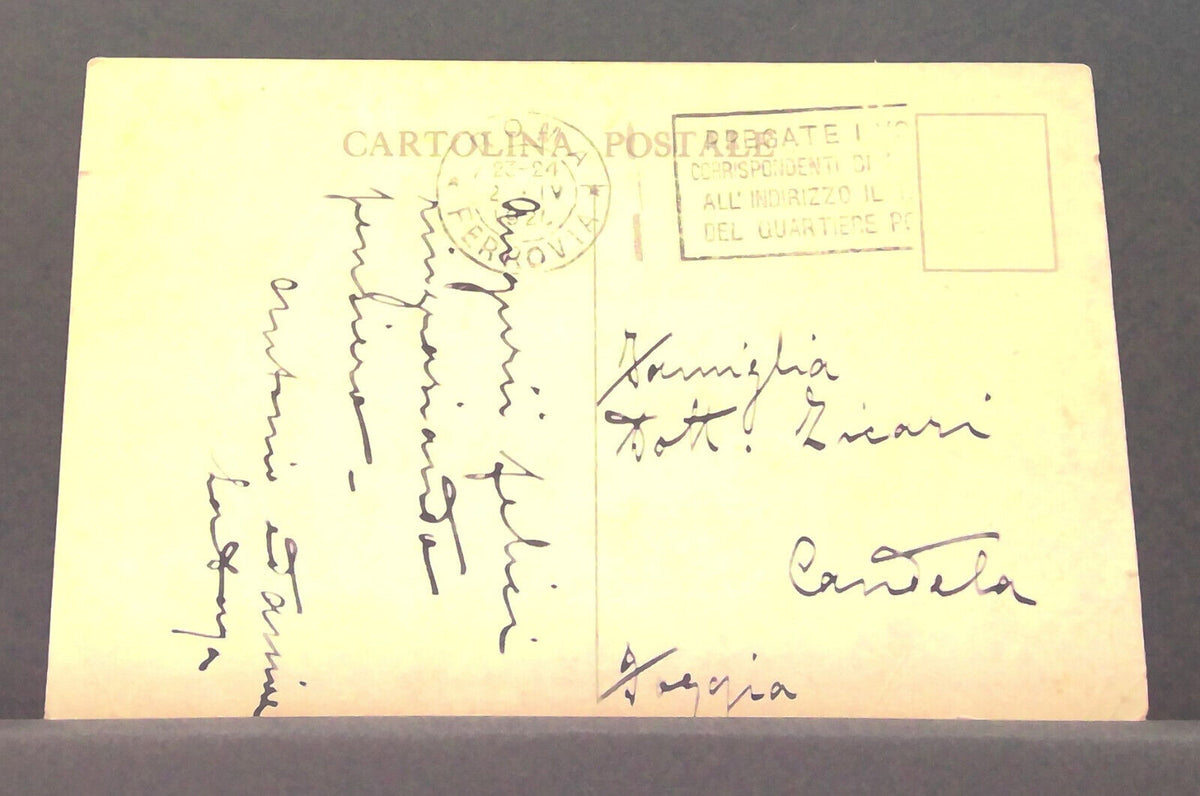 CARTOLINA POSTALE
ROMA
23-24
IV
FERROVIA
PREGATE I
CORRISPONDENTI DI
ALL'INDIRIZZO IL
DEL QUARTIERE
Auguri felici
ringraziando
pensiero-
Antonio ed Annie
Famiglia
Dott. Zicari
Candela
Foggia